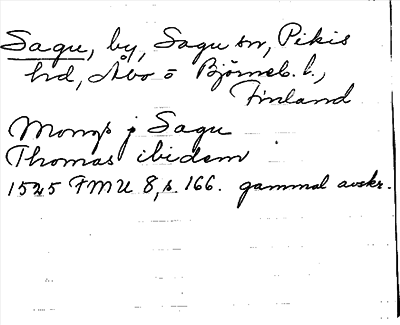 Sagu, by, Sagu sn, Pikis
hd, Åbo o Björneb. l.,
Finland
Mongs j Sagu
Thomas ibidem
1525 FMU 8, s. 166. gammal avskr.